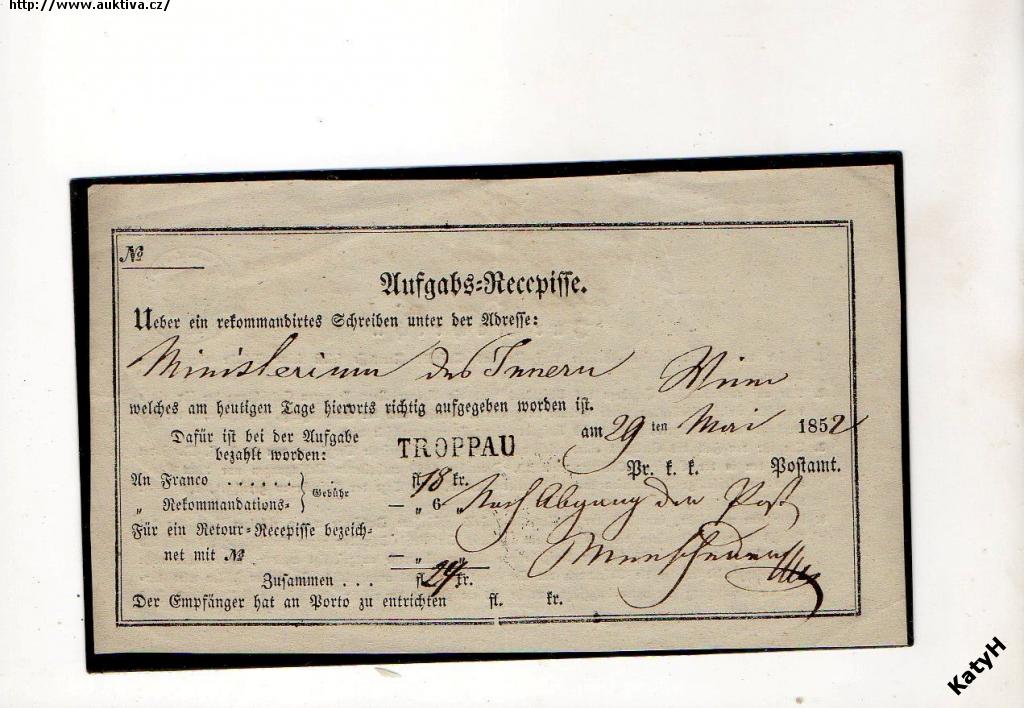 http://www.auktiva.cz/
№
Aufgabs-Recepisse.
Ueber ein rekommandirtes Schreiben unter der Adresse:
Ministerium des Innern Wien
welches am heutigen Tage hierorts richtig aufgegeben worden ist.
am 29 ten Mai 1852
Dafür ist bei der Aufgabe
bezahlt worden:
TROPPAU
Pr. k. k. Postamt.
An Franco . . . . . . fl. 18 kr.
„ Rekommandations- Gebühr — „ 6 „
Nach Abgang der Post
Für ein Retour-Recepisse bezeich-
net mit № — „ „
Zusammen . . . fl. 24 kr.
Der Empfänger hat an Porto zu entrichten fl. kr.
KatyH